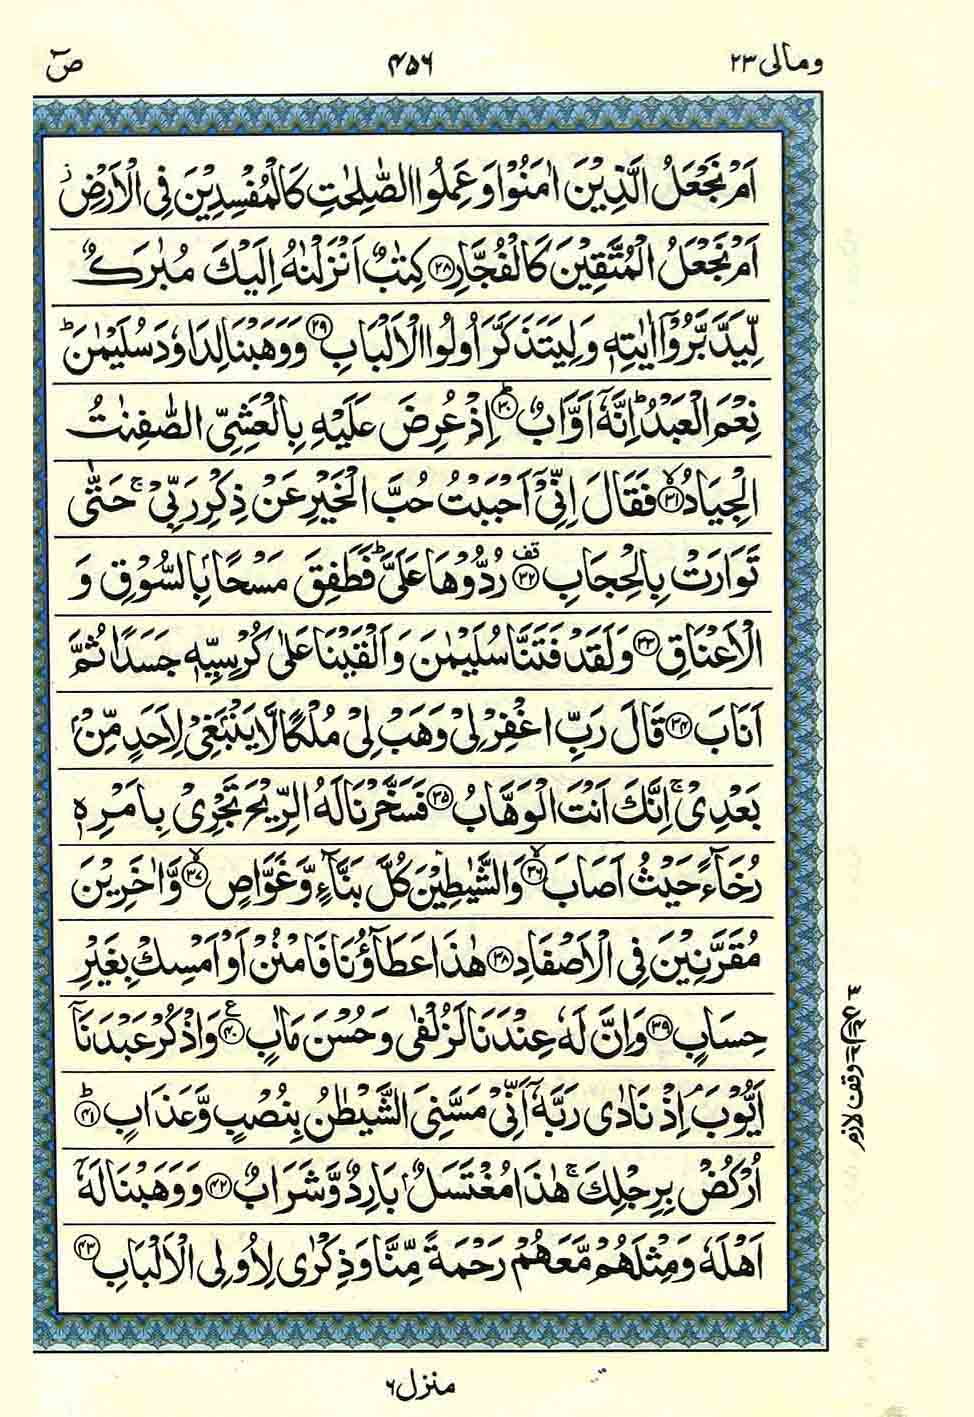 ومالى ٢٣
٤٥٦
صٓ
اَمۡ نَجۡعَلُ الَّذِيۡنَ اٰمَنُوۡا وَعَمِلُوا الصّٰلِحٰتِ كَالۡمُفۡسِدِيۡنَ فِى الۡاَرۡضِ ز
اَمۡ نَجۡعَلُ الۡمُتَّقِيۡنَ كَالۡفُجَّارِ ﴿٢٨﴾ كِتٰبٌ اَنۡزَلۡنٰهُ اِلَيۡكَ مُبٰرَكٌ
لِّيَدَّبَّرُوۡۤا اٰيٰتِهٖ وَلِيَتَذَكَّرَ اُولُوا الۡاَلۡبَابِ ﴿٢٩﴾ وَوَهَبۡنَا لِدَاوٗدَ سُلَيۡمٰنَ ؕ
نِعۡمَ الۡعَبۡدُ ؕ اِنَّهٗۤ اَوَّابٌ ؕ ﴿٣٠﴾ اِذۡ عُرِضَ عَلَيۡهِ بِالۡعَشِىِّ الصّٰفِنٰتُ
الۡجِيَادُ ۙ ﴿٣١﴾ فَقَالَ اِنِّىۡۤ اَحۡبَبۡتُ حُبَّ الۡخَيۡرِ عَنۡ ذِكۡرِ رَبِّىۡ ۚ حَتّٰى
تَوَارَتۡ بِالۡحِجَابِ قف ﴿٣٢﴾ رُدُّوۡهَا عَلَىَّ ؕ فَطَفِقَ مَسۡحًۢا بِالسُّوۡقِ وَ
الۡاَعۡنَاقِ ﴿٣٣﴾ وَلَقَدۡ فَتَنَّا سُلَيۡمٰنَ وَاَلۡقَيۡنَا عَلٰى كُرۡسِيِّهٖ جَسَدًا ثُمَّ
اَنَابَ ﴿٣٤﴾ قَالَ رَبِّ اغۡفِرۡ لِىۡ وَهَبۡ لِىۡ مُلۡكًا لَّا يَنۡۢبَغِىۡ لِاَحَدٍ مِّنۡۢ
بَعۡدِىۡ ۚ اِنَّكَ اَنۡتَ الۡوَهَّابُ ﴿٣٥﴾ فَسَخَّرۡنَا لَهُ الرِّيۡحَ تَجۡرِىۡ بِاَمۡرِهٖ
رُخَآءً حَيۡثُ اَصَابَ ۙ ﴿٣٦﴾ وَالشَّيٰطِيۡنَ كُلَّ بَنَّآءٍ وَّغَوَّاصٍ ۙ ﴿٣٧﴾ وَّاٰخَرِيۡنَ
مُقَرَّنِيۡنَ فِى الۡاَصۡفَادِ ﴿٣٨﴾ هٰذَا عَطَآؤُنَا فَامۡنُنۡ اَوۡ اَمۡسِكۡ بِغَيۡرِ
حِسَابٍ ﴿٣٩﴾ وَاِنَّ لَهٗ عِنۡدَنَا لَزُلۡفٰى وَحُسۡنَ مَاٰبٍ ع ﴿٤٠﴾ وَاذۡكُرۡ عَبۡدَنَاۤ
اَيُّوۡبَ ۘ اِذۡ نَادٰى رَبَّهٗۤ اَنِّىۡ مَسَّنِىَ الشَّيۡطٰنُ بِنُصۡبٍ وَّعَذَابٍ ؕ ﴿٤١﴾
اُرۡكُضۡ بِرِجۡلِكَ ۚ هٰذَا مُغۡتَسَلٌۢ بَارِدٌ وَّشَرَابٌ ﴿٤٢﴾ وَوَهَبۡنَا لَهٗۤ
اَهۡلَهٗ وَمِثۡلَهُمۡ مَّعَهُمۡ رَحۡمَةً مِّنَّا وَذِكۡرٰى لِاُولِى الۡاَلۡبَابِ ﴿٤٣﴾
وقف لازم
منزل ٦